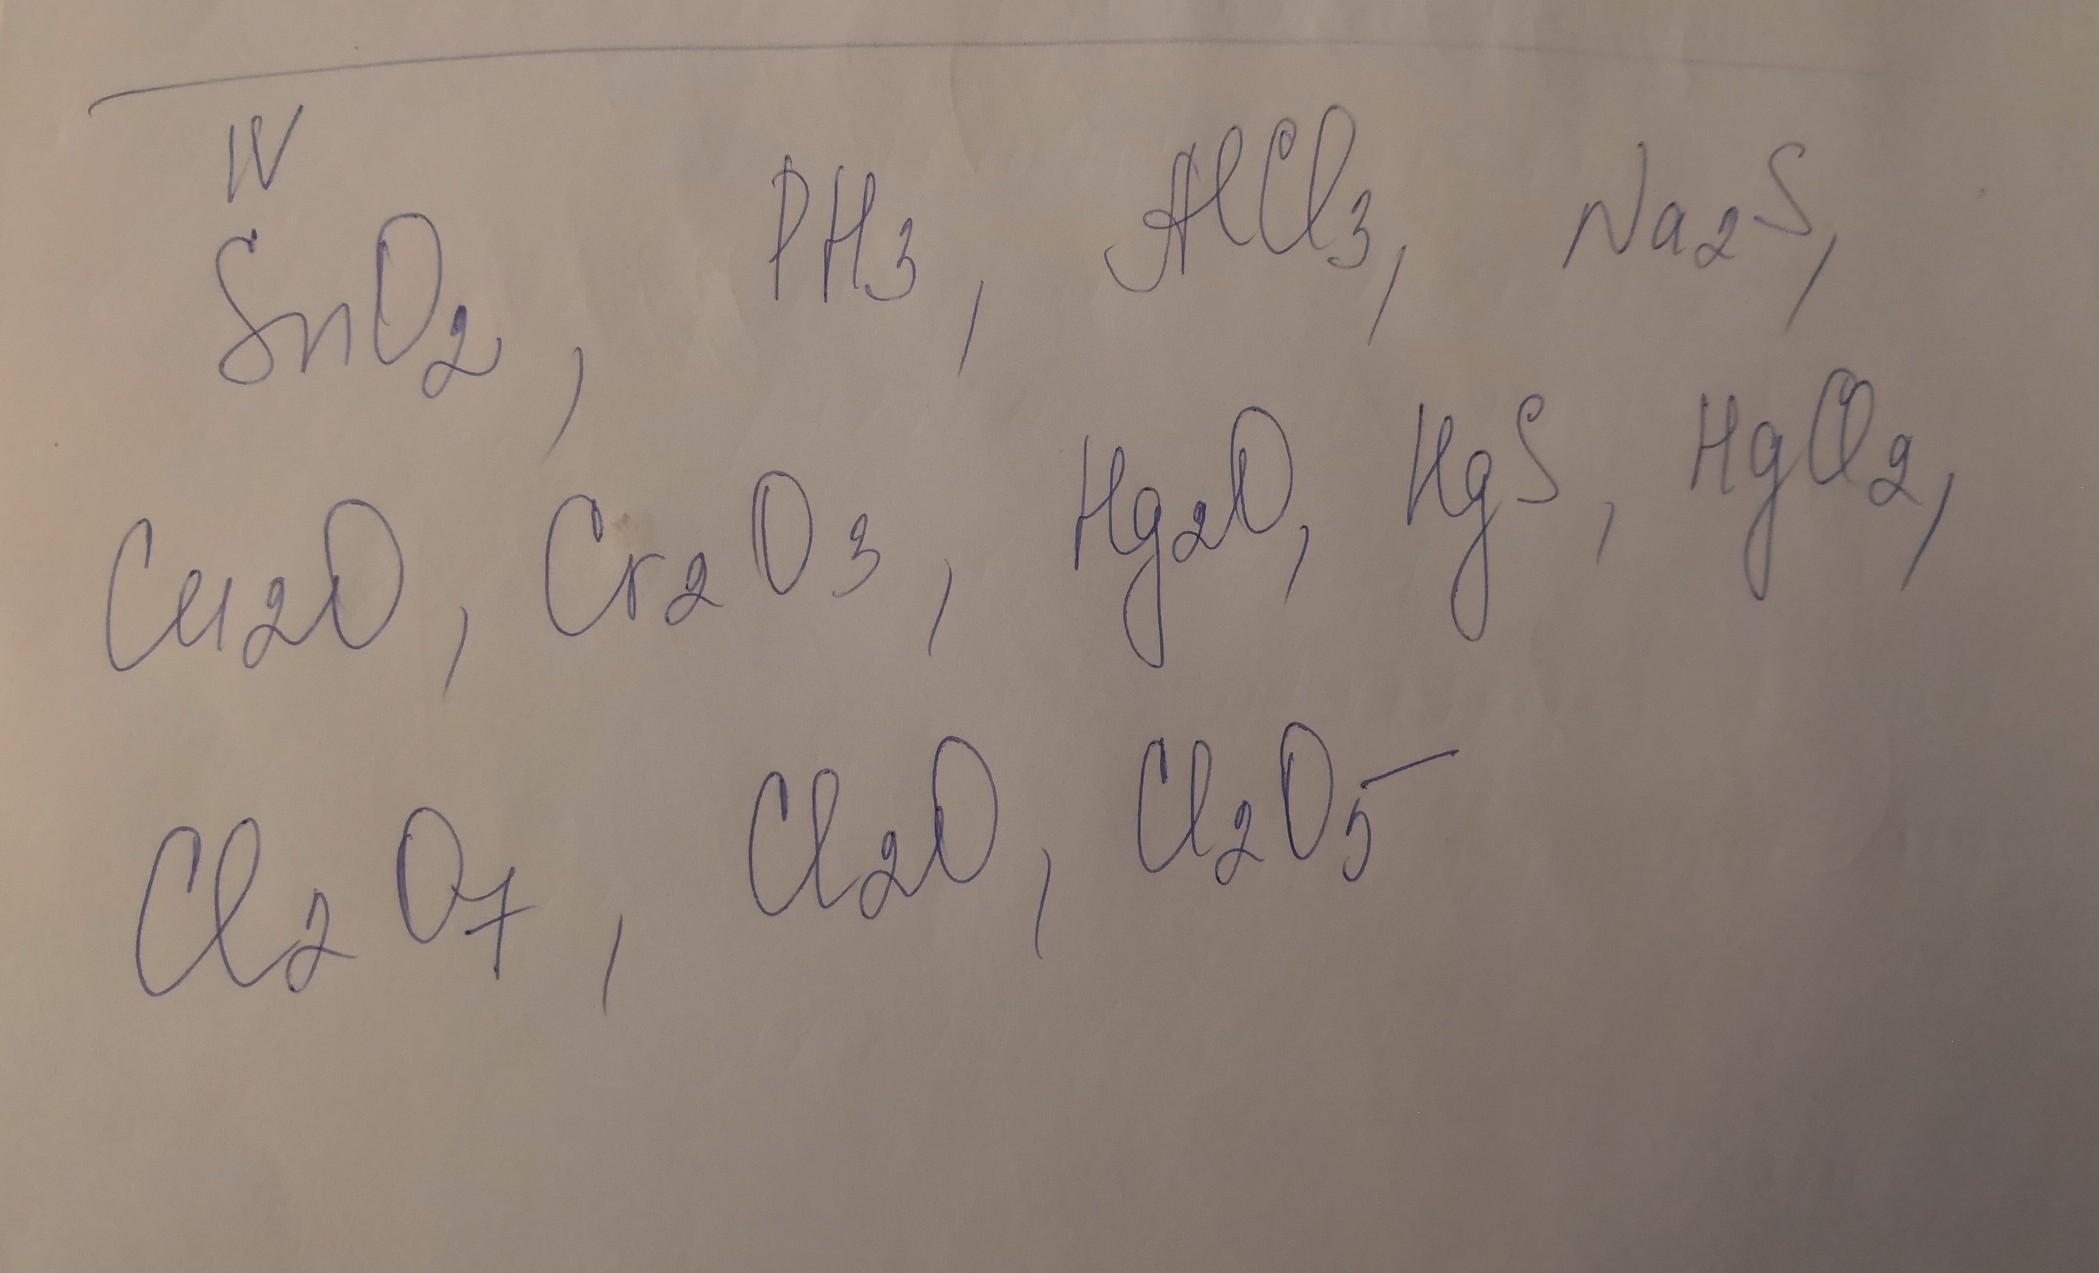 IV
SnO₂, PH₃, AlCl₃, Na₂S,
Cu₂O, Cr₂O₃, Hg₂O, HgS, HgCl₂,
Cl₂O₇, Cl₂O, Cl₂O₅